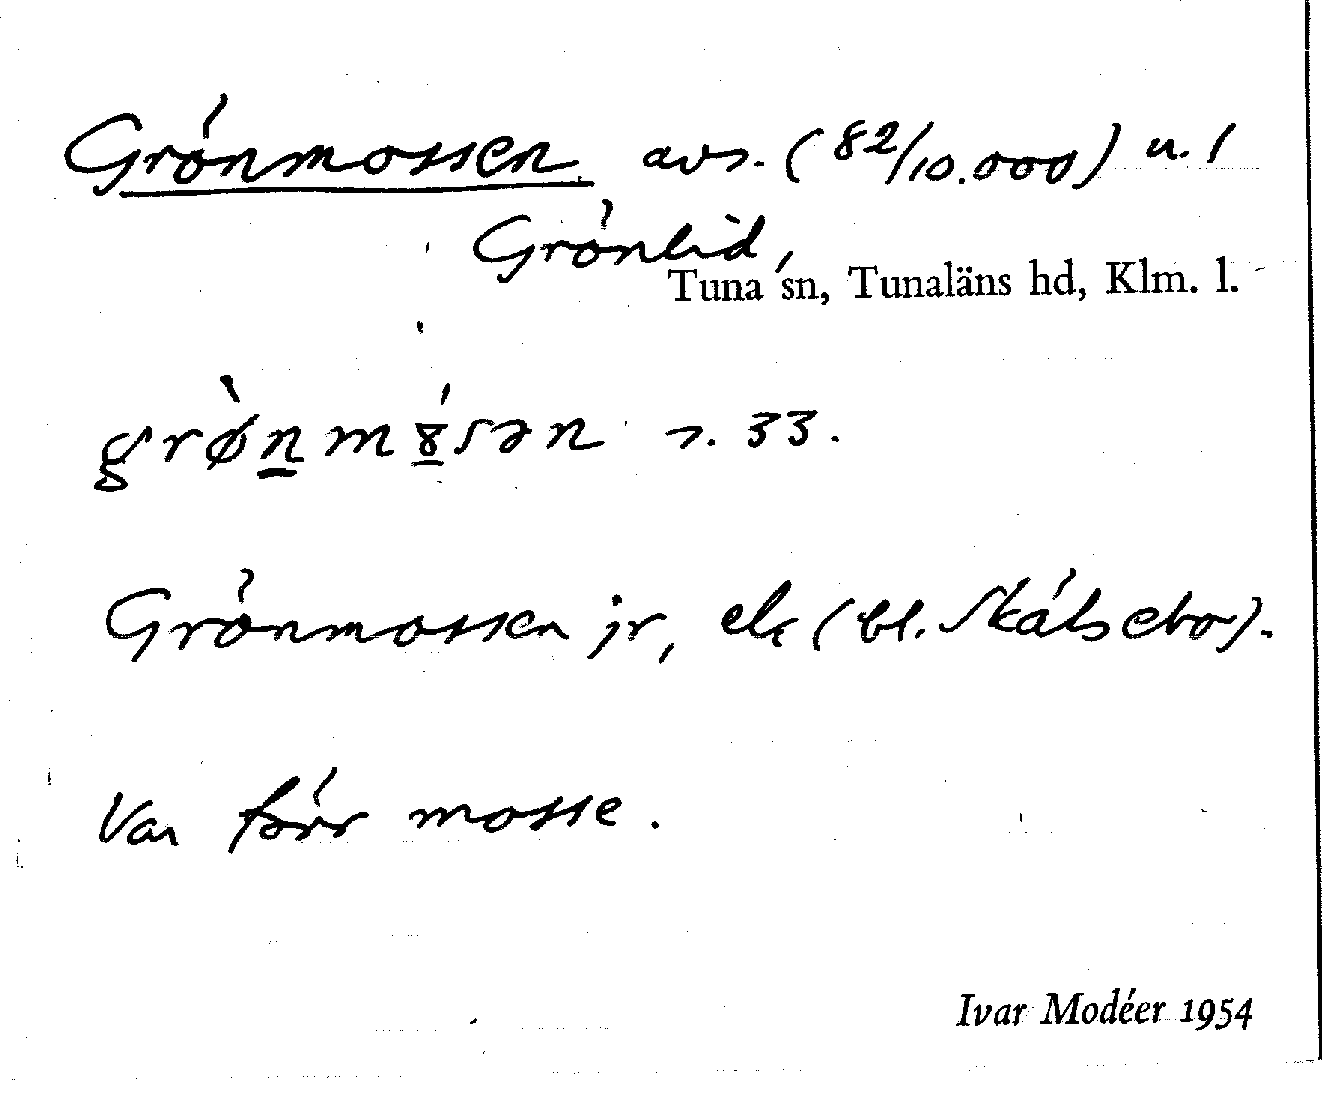 Grönmossen avs. (82/10.000) u. 1
Grönlid,
Tuna sn, Tunaläns hd, Klm. l.
grø̀nmɤ́sən s. 33.
Grönmossen jr, (bl. Skålsebo).
Var förr mosse.
Ivar Modéer 1954